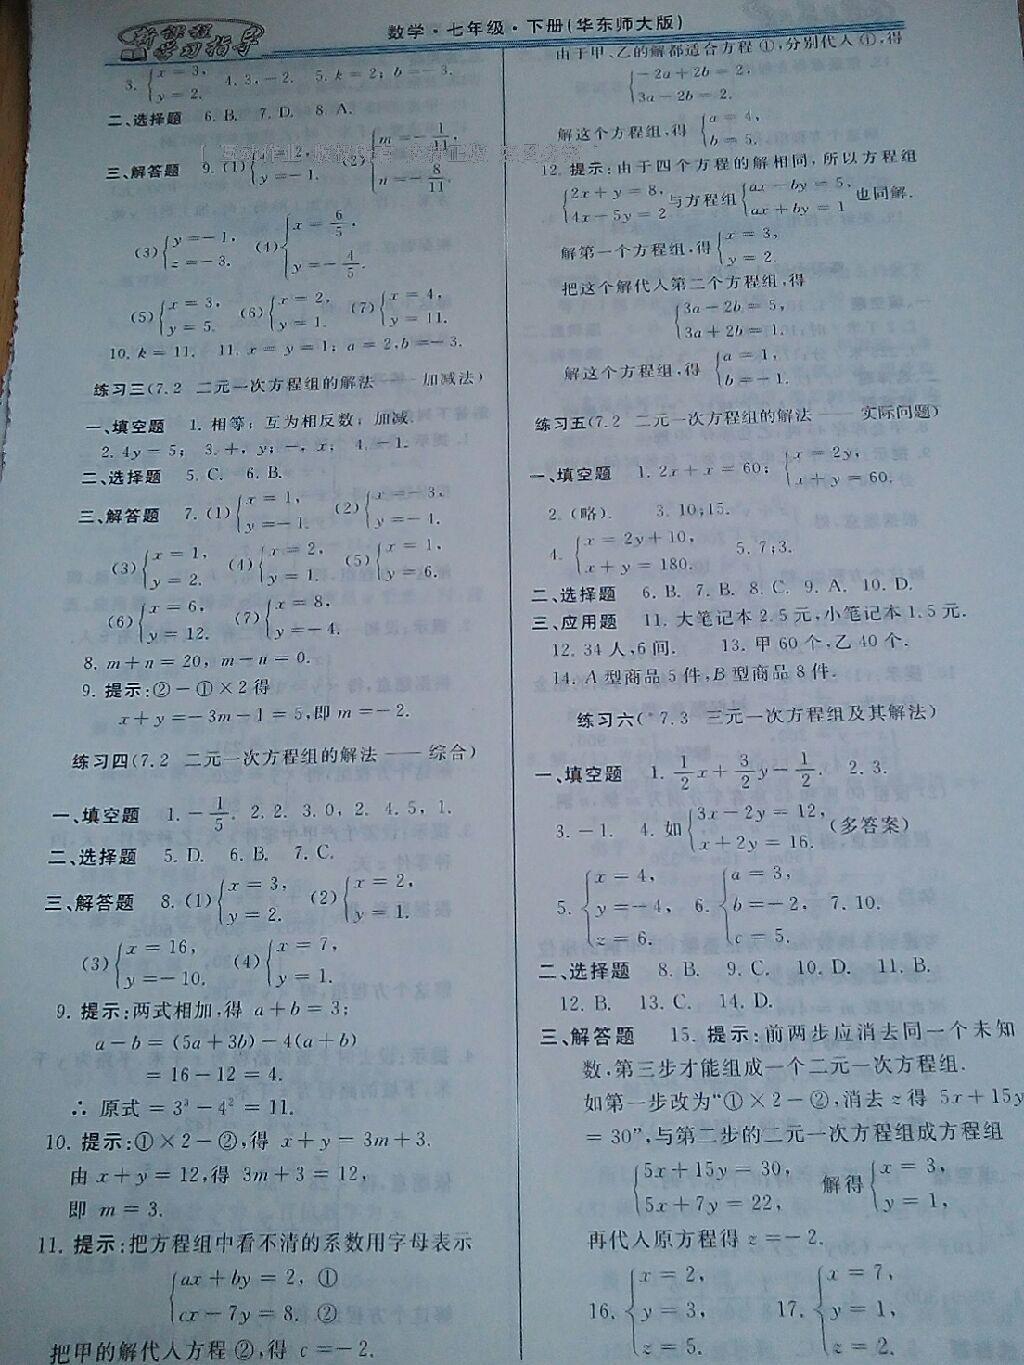 新课程
学习指导
数学·七年级·下册(华东师大版)
3. {x = 3, y = 2. 4. 3, -2. 5. k = 2; b = -3.
二、选择题 6. B. 7. D. 8. A.
三、解答题 9. (1) {x = 2, y = -1. {m = -1/11, n = -8/11.
(3) {y = -1, z = -3. (4) {x = 6/5, y = -4/5.
(5) {x = 3, y = 5. (6) {x = 2, y = 1. (7) {x = 4, y = 11.
10. k = 11. 11. x = y = 1; a = 2, b = -3.
练习三(7.2 二元一次方程组的解法 —— 加减法)
一、填空题 1. 相等; 互为相反数; 加减.
2. 4y = 5; 3. +, y; -, x; 4. -1.
二、选择题 5. C. 6. B.
三、解答题 7. (1) {x = 1, y = -1. (2) {x = -3, y = -4.
(3) {x = 1, y = 2. (4) {x = 2, y = 1. (5) {x = 1, y = 6.
(6) {x = 6, y = 12. (7) {x = 8, y = -4.
8. m + n = 20, m - n = 0.
9. 提示:②-①×2得
x + y = -3m - 1 = 5,即 m = -2.
练习四(7.2 二元一次方程组的解法 —— 综合)
一、填空题 1. -1/5. 2. 2. 3. 0, 2. 4. 5, 1.
二、选择题 5. D. 6. B. 7. C.
三、解答题 8. (1) {x = 3, y = 2. (2) {x = 2, y = 1.
(3) {x = 16, y = -10. (4) {x = 7, y = 1.
9. 提示:两式相加,得 a + b = 3;
a - b = (5a + 3b) - 4(a + b)
= 16 - 12 = 4.
∴ 原式 = 3³ - 4² = 11.
10. 提示:①×2-②,得 x + y = 3m + 3.
由 x + y = 12,得 3m + 3 = 12,
即 m = 3.
11. 提示:把方程组中看不清的系数用字母表示
{ax + by = 2, ①
cx - 7y = 8. ②
把甲的解代入方程②,得 c = -2.
由于甲、乙的解都适合方程①,分别代入①,得
{-2a + 2b = 2,
3a - 2b = 2.
解这个方程组,得 {a = 4, b = 5.
12. 提示:由于四个方程的解相同,所以方程组
{2x + y = 8, 4x - 5y = 2 与方程组 {ax - by = 5, ax + by = 1 也同解.
解第一个方程组,得 {x = 3, y = 2.
把这个解代入第二个方程组,得
{3a - 2b = 5,
3a + 2b = 1.
解这个方程组,得 {a = 1, b = -1.
练习五(7.2 二元一次方程组的解法 —— 实际问题)
一、填空题 1. 2x + x = 60; {x = 2y, x + y = 60.
2. (略). 3. 10;15.
4. {x = 2y + 10, x + y = 180. 5. 7;3.
二、选择题 6. B. 7. B. 8. C. 9. A. 10. D.
三、应用题 11. 大笔记本2.5元,小笔记本1.5元.
12. 34人,6间. 13. 甲60个,乙40个.
14. A型商品5件,B型商品8件.
练习六(*7.3 三元一次方程组及其解法)
一、填空题 1. 1/2 x + 3/2 y - 1/2. 2. 3.
3. -1. 4. 如 {3x - 2y = 12, x + 2y = 16. (多答案)
5. {x = 4, y = -4, z = 6. 6. {a = 3, b = -2, c = 5. 7. 10.
二、选择题 8. B. 9. C. 10. D. 11. B.
12. B. 13. C. 14. D.
三、解答题 15. 提示:前两步应消去同一个未知
数,第三步才能组成一个二元一次方程组.
如第一步改为“①×2-②,消去z得 5x + 15y
= 30”,与第二步的二元一次方程组成方程组
{5x + 15y = 30, 5x + 7y = 22, 解得 {x = 3, y = 1,
再代入原方程得 z = -2.
16. {x = 2, y = 3, z = 5. 17. {x = 7, y = 1, z = 2.